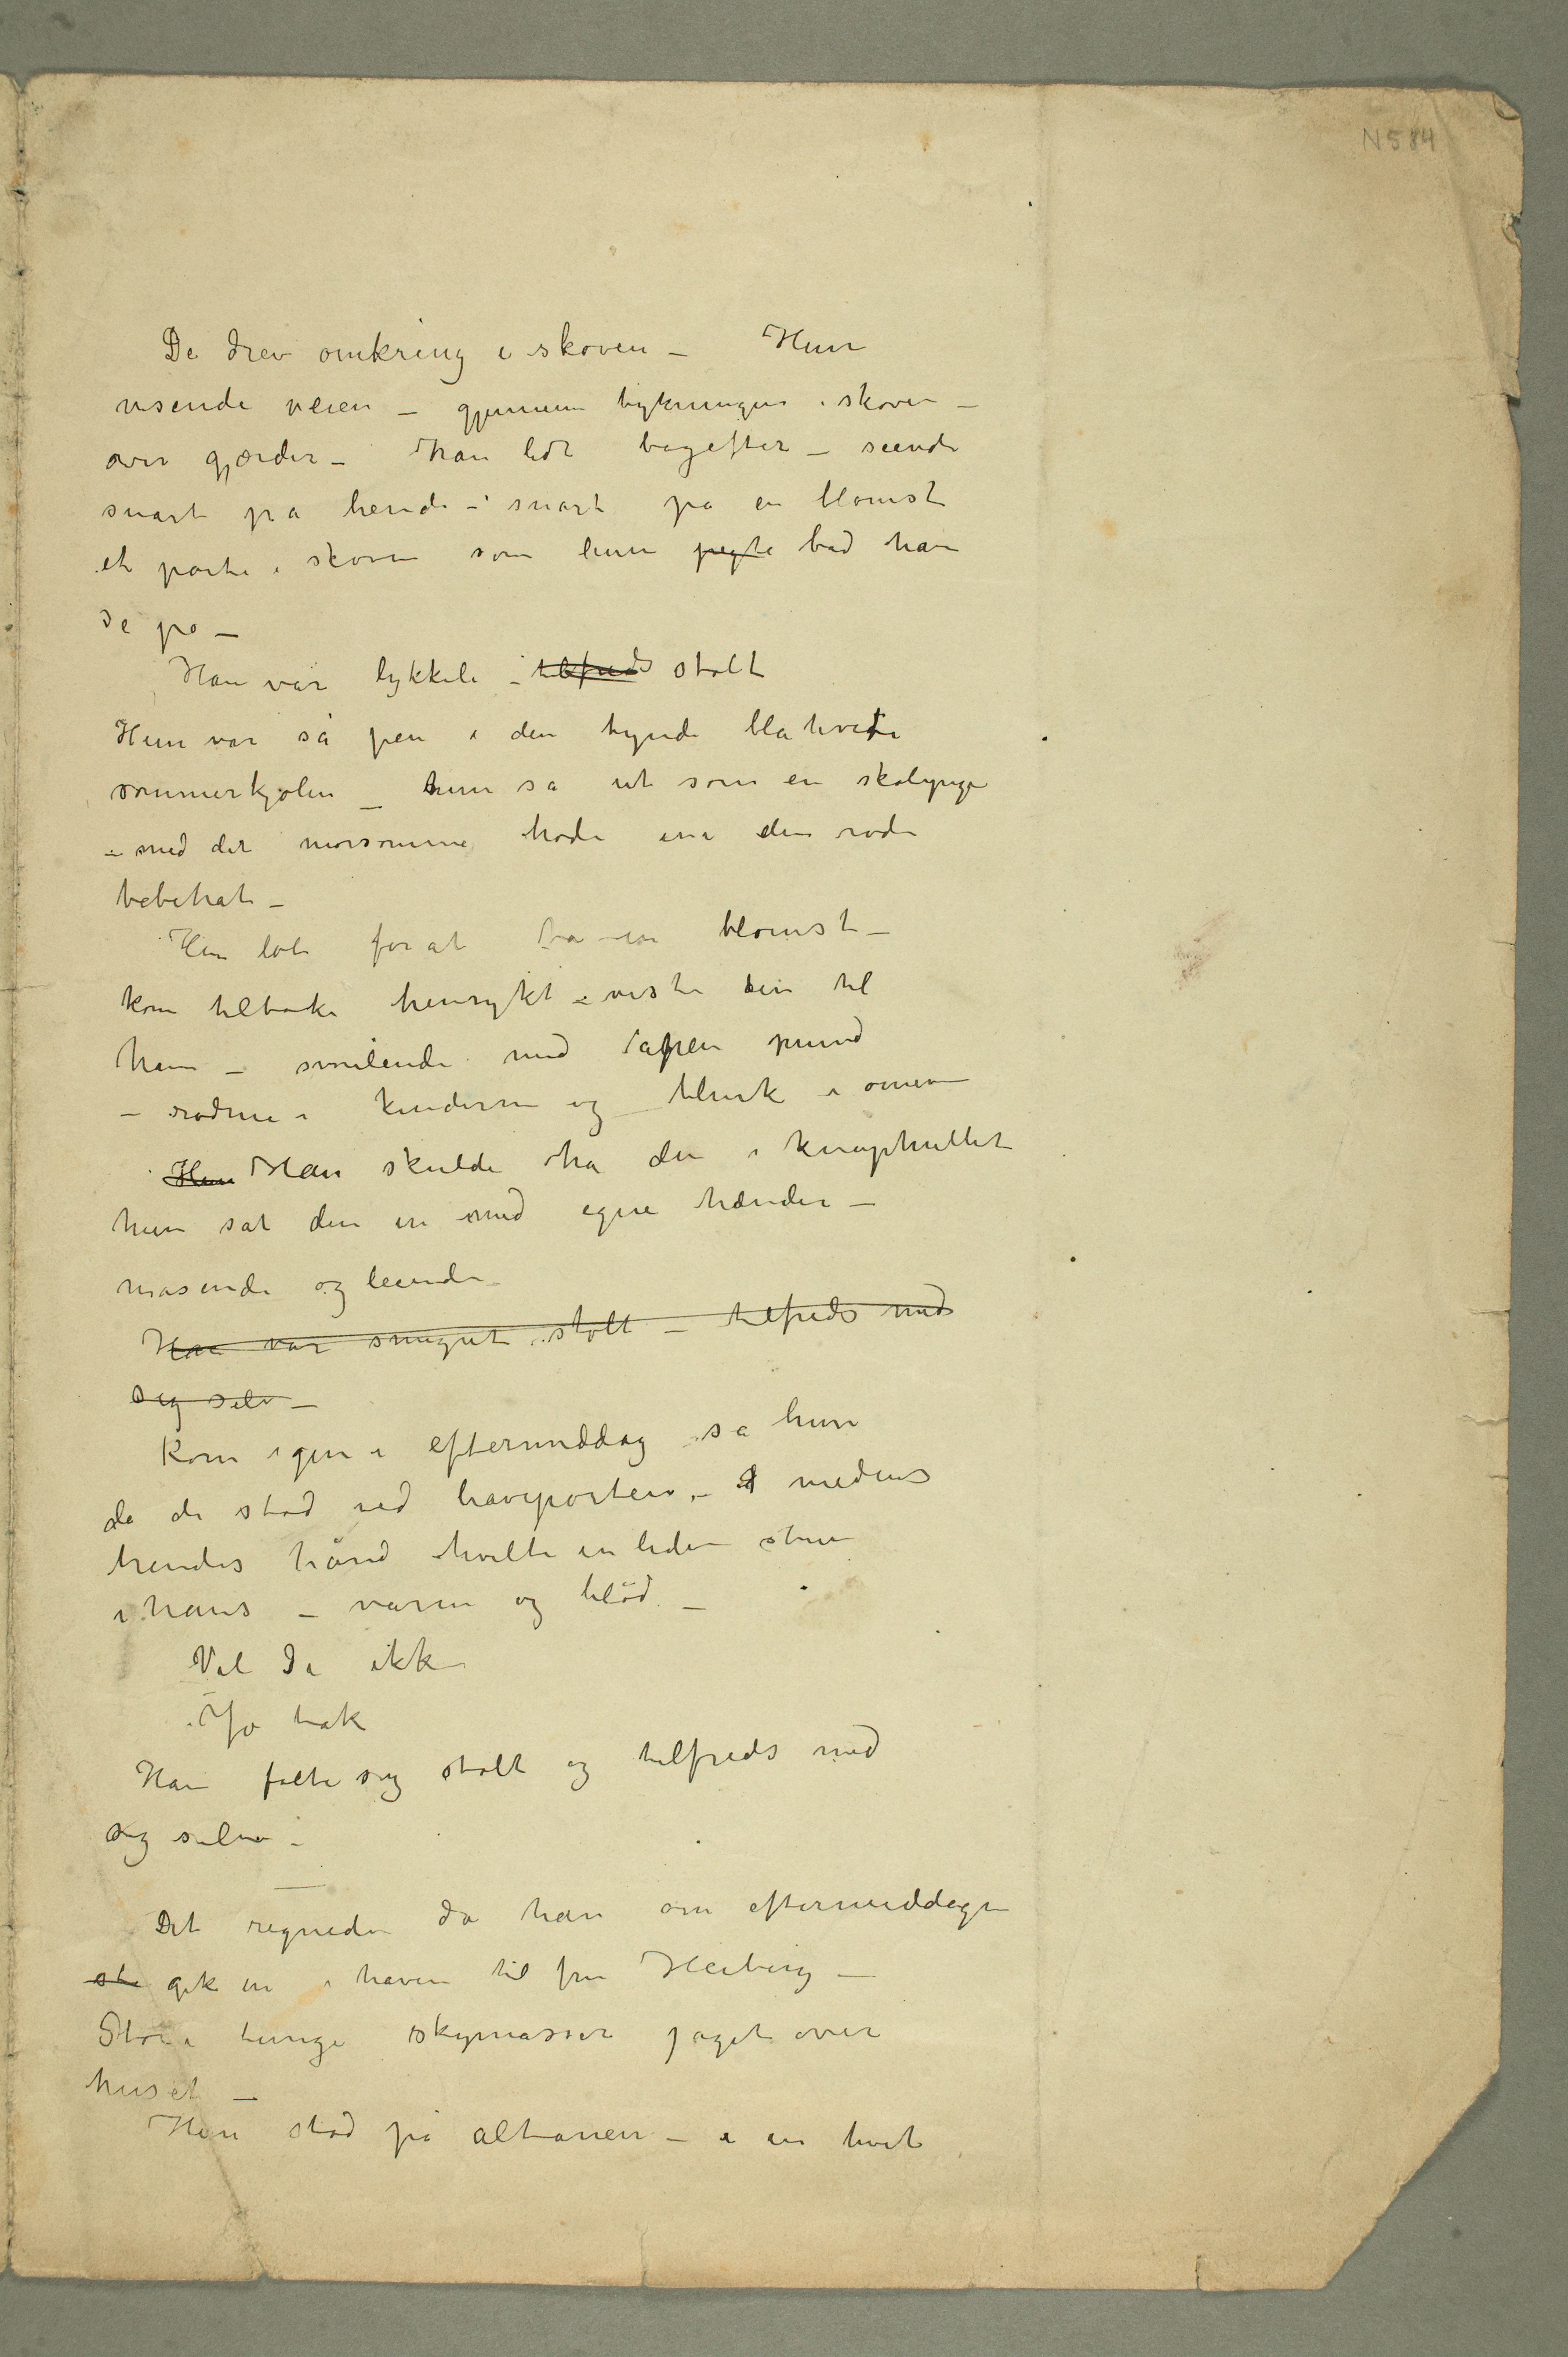 N 584
De drev omkring i skoven – Hun
visende veien – gjennem tykningen i skoven –
over gjærder – han lidt bagefter – seende
snart på hende – snart på en blomst
et parti i skoven som hun pegte bad ham
se på –
Han var lykkeli – tilfreds stolt
Hun var så pen i den tynde blåhvide
sommerkjolen – hun så ut som en skolepige
– med det morsomme hode ine den røde
bebihat –
Hun løb for at ta en blomst –
kom tilbake henrykt – viste den til
ham – smilende med åpen mund
– rødme i kinderne og blink i øinene
Hun Han skulde ha den i knaphullet
hun sat den in med egne hænder –
masende og leende
Han var smigret stolt – tilfreds med
sig selv –
Kom igen i eftermiddag sa hun
da de stod ved haveporten – medens
hendes hånd hvilte en liden stun
i hans – varm og blød –
Vil De ikke
Jo tak
Han følte sig stolt og tilfreds med
sig selv –
Det regnede da han om eftermiddagen
sto gik in i haven til fru Heiberg –
Store tunge skymasser jaget over
huset –
Hun stod på altanen – i en hvit